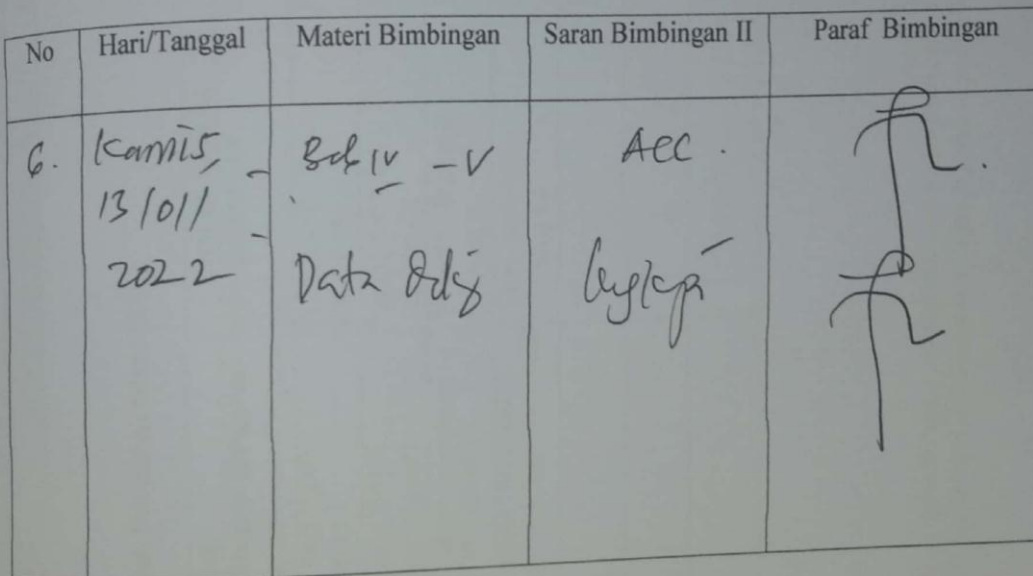 No Hari/Tanggal Materi Bimbingan Saran Bimbingan II Paraf Bimbingan
6. Kamis, Bab IV - V Acc.
13/01/
2022 Data Lengkapi